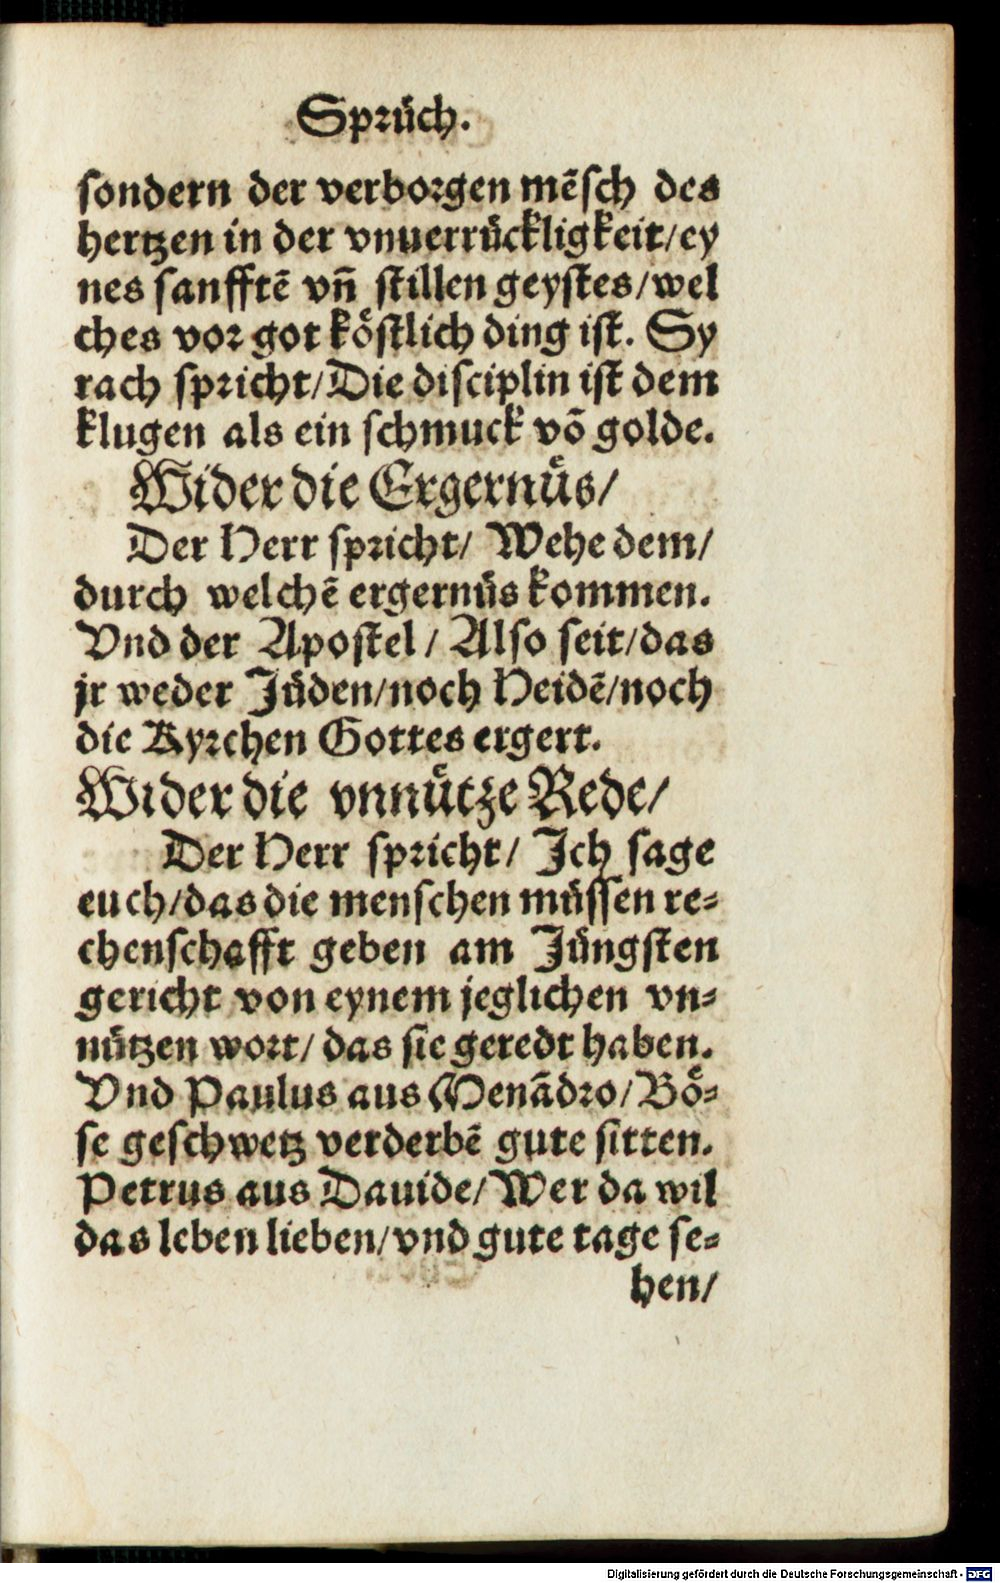 Sprüch.
sondern der verborgen mēsch des
hertzen in der vnuerrückligkeit/ey
nes sanfftē vn̄ stillen geystes/wel
ches vor got köstlich ding ist. Sy
rach spricht/Die disciplin ist dem
klugen als ein schmuck vō golde.
Wider die Ergernüs/
Der Herr spricht/ Wehe dem/
durch welchē ergernüs kommen.
Vnd der Apostel/ Also seit/das
jr weder Jüden/noch Heidē/noch
die Kyrchen Gottes ergert.
Wider die vnnütze Rede/
Der Herr spricht/ Ich sage
euch/das die menschen müssen re-
chenschafft geben am Jüngsten
gericht von eynem jeglichen vn-
nützen wort/ das sie geredt haben.
Vnd Paulus aus Menādro/Bö-
se geschwetz verderbē gute sitten.
Petrus aus Dauide/Wer da wil
das leben lieben/vnd gute tage se-
hen/
Digitalisierung gefördert durch die Deutsche Forschungsgemeinschaft - DFG